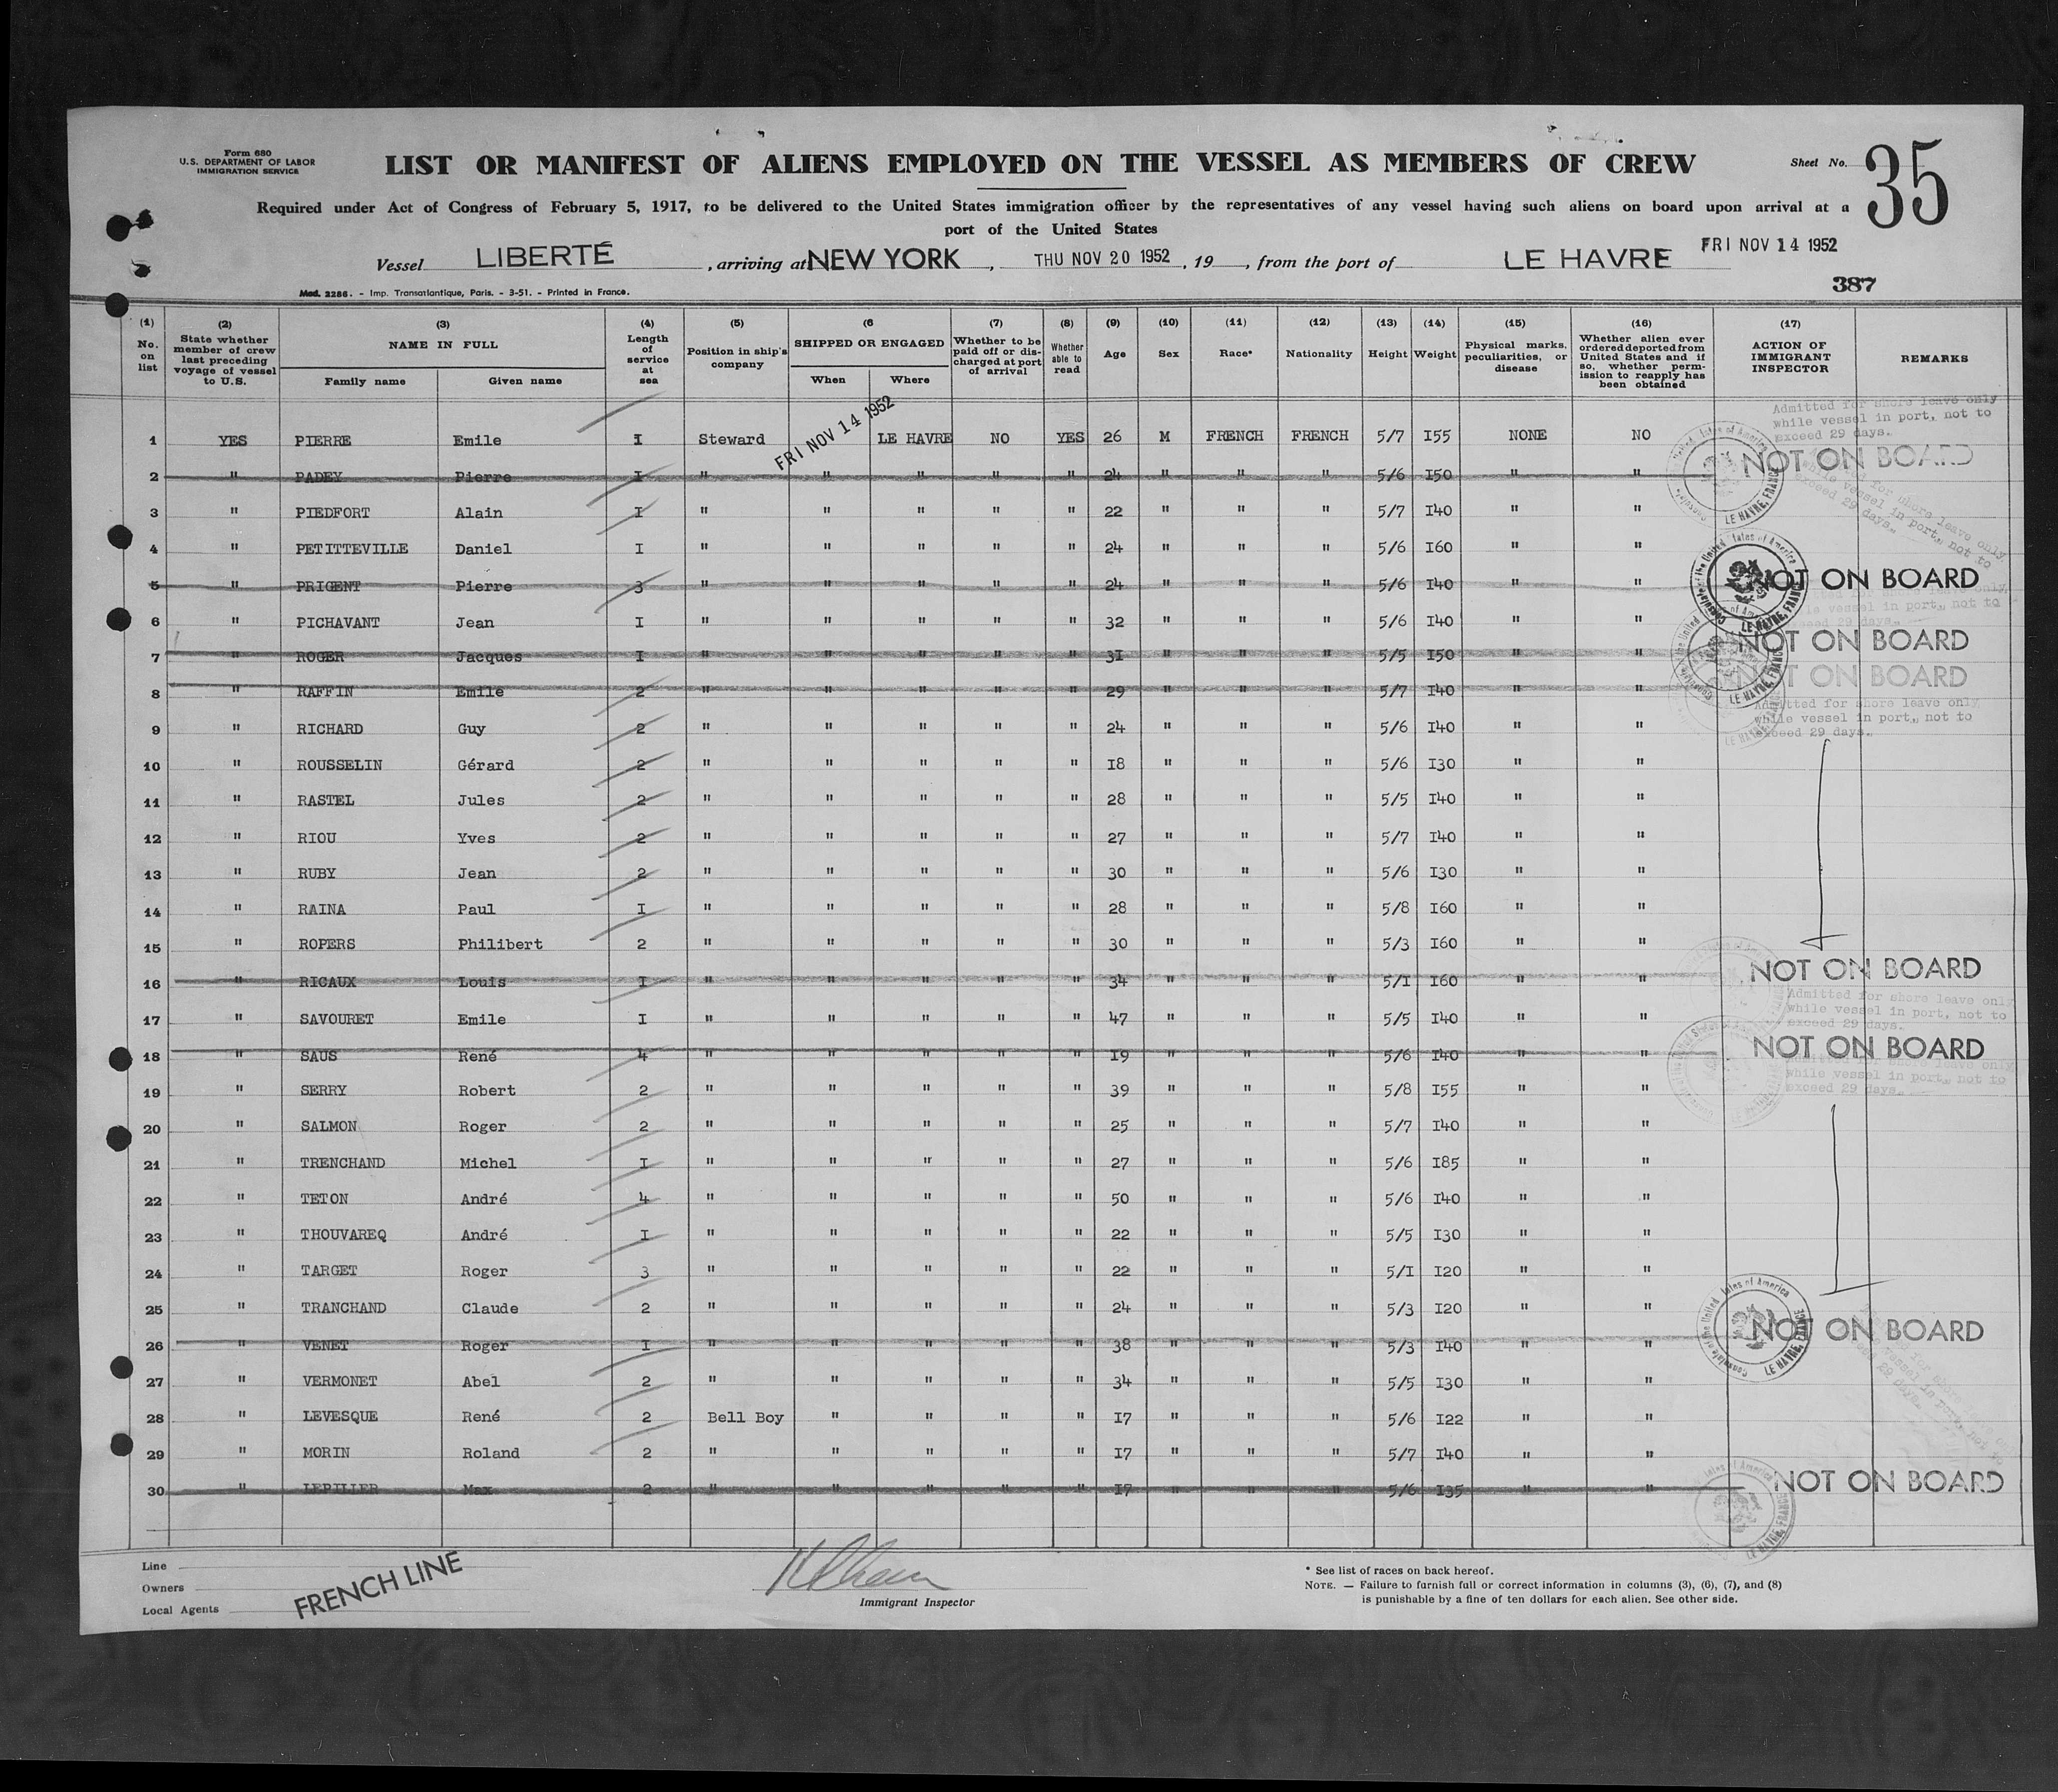 Form 680
U.S. DEPARTMENT OF LABOR
IMMIGRATION SERVICE
LIST OR MANIFEST OF ALIENS EMPLOYED ON THE VESSEL AS MEMBERS OF CREW
Sheet No. 35
Required under Act of Congress of February 5, 1917, to be delivered to the United States immigration officer by the representatives of any vessel having such aliens on board upon arrival at a
port of the United States
Vessel LIBERTÉ, arriving at NEW YORK, THU NOV 20 1952, 19 , from the port of LE HAVRE FRI NOV 14 1952
387
Mod. 2286. - Imp. Transatlantique, Paris. - 3-51. - Printed in France.
(1) No. on list (2) State whether member of crew last preceding voyage of vessel to U.S. (3) NAME IN FULL Family name Given name (4) Length of service at sea (5) Position in ship's company (6 SHIPPED OR ENGAGED When Where (7) Whether to be paid off or discharged at port of arrival (8) Whether able to read (9) Age (10) Sex (11) Race* (12) Nationality (13) Height (14) Weight (15) Physical marks, peculiarities, or disease (16) Whether alien ever ordered deported from United States and if so, whether permission to reapply has been obtained (17) ACTION OF IMMIGRANT INSPECTOR REMARKS
Admitted for shore leave only while vessel in port, not to exceed 29 days.
1 YES PIERRE Emile I Steward FRI NOV 14 1952 LE HAVRE NO YES 26 M FRENCH FRENCH 5/7 I55 NONE NO
2 " PADEY Pierre I " " " " " 24 " " " 5/6 I50 " " NOT ON BOARD
3 " PIEDFORT Alain I " " " " " 22 " " " 5/7 I40 " "
4 " PETITTEVILLE Daniel I " " " " " 24 " " " 5/6 I60 " "
5 " PRIGENT Pierre 3 " " " " " 24 " " " 5/6 I40 " " NOT ON BOARD
6 " PICHAVANT Jean I " " " " " 32 " " " 5/6 I40 " "
7 " ROGER Jacques I " " " " " 31 " " " 5/5 I50 " " NOT ON BOARD
8 " RAFFIN Emile 2 " " " " " 29 " " " 5/7 I40 " " NOT ON BOARD
Admitted for shore leave only while vessel in port, not to exceed 29 days.
9 " RICHARD Guy 2 " " " " " 24 " " " 5/6 I40 " "
10 " ROUSSELIN Gérard 2 " " " " " I8 " " " 5/6 I30 " "
11 " RASTEL Jules 2 " " " " " 28 " " " 5/5 I40 " "
12 " RIOU Yves 2 " " " " " 27 " " " 5/7 I40 " "
13 " RUBY Jean 2 " " " " " 30 " " " 5/6 I30 " "
14 " RAINA Paul I " " " " " 28 " " " 5/8 I60 " "
15 " ROPERS Philibert 2 " " " " " 30 " " " 5/3 I60 " "
16 " RICAUX Louis I " " " " " 34 " " " 5/I I60 " " NOT ON BOARD
Admitted for shore leave only while vessel in port, not to exceed 29 days.
17 " SAVOURET Emile I " " " " " 47 " " " 5/5 I40 " "
18 " SAUS René 4 " " " " " I9 " " " 5/6 I40 " " NOT ON BOARD
while vessel in port, not to exceed 29 days.
19 " SERRY Robert 2 " " " " " 39 " " " 5/8 I55 " "
20 " SALMON Roger 2 " " " " " 25 " " " 5/7 I40 " "
21 " TRENCHAND Michel I " " " " " 27 " " " 5/6 I85 " "
22 " TETON André 4 " " " " " 50 " " " 5/6 I40 " "
23 " THOUVAREQ André I " " " " " 22 " " " 5/5 I30 " "
24 " TARGET Roger 3 " " " " " 22 " " " 5/I I20 " "
25 " TRANCHAND Claude 2 " " " " " 24 " " " 5/3 I20 " "
26 " VENET Roger I " " " " " 38 " " " 5/3 I40 " " NOT ON BOARD
27 " VERMONET Abel 2 " " " " " 34 " " " 5/5 I30 " "
28 " LEVESQUE René 2 Bell Boy " " " " I7 " " " 5/6 I22 " "
29 " MORIN Roland 2 " " " " " I7 " " " 5/7 I40 " "
30 " LEPILLER Max 2 " " " " " I7 " " " 5/6 I35 " " NOT ON BOARD
Line
Owners
Local Agents
FRENCH LINE
Immigrant Inspector
* See list of races on back hereof.
NOTE. — Failure to furnish full or correct information in columns (3), (6), (7), and (8)
is punishable by a fine of ten dollars for each alien. See other side.